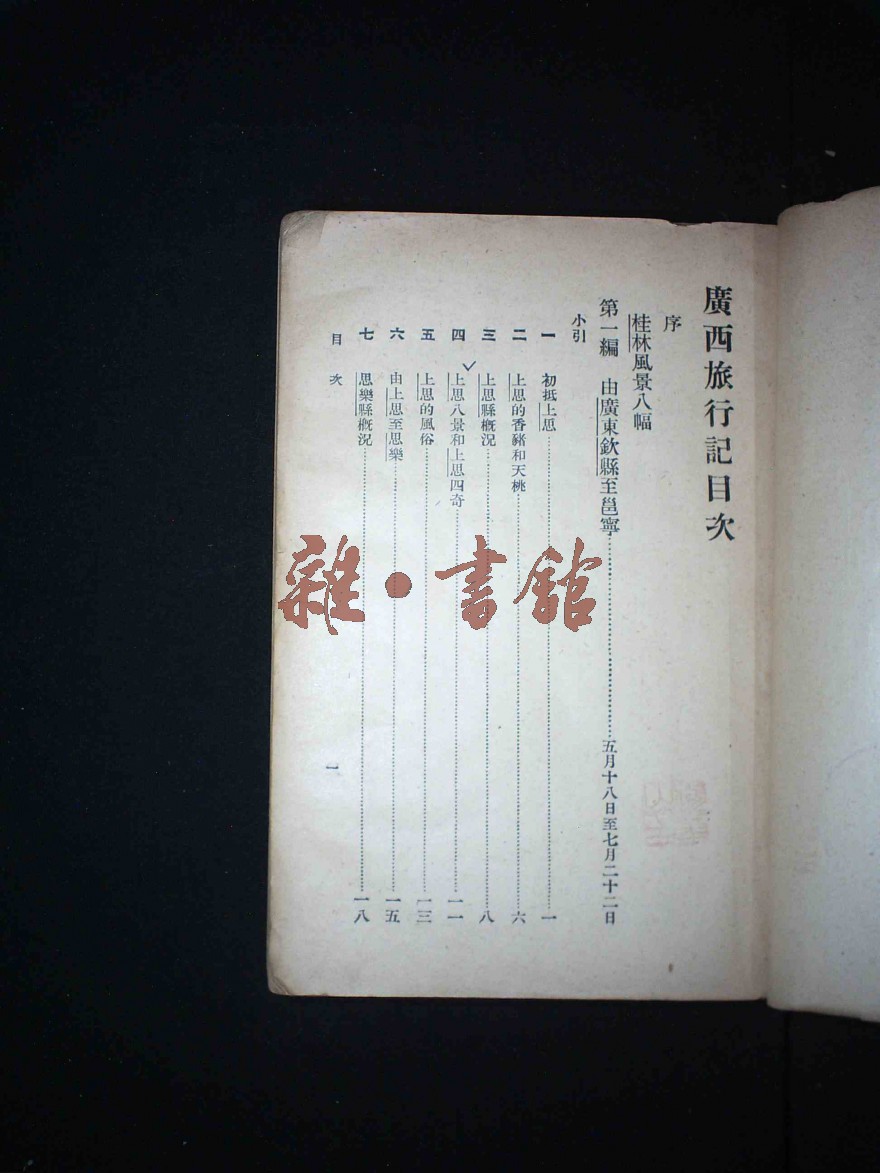 廣西旅行記目次
序
桂林風景八幅
第一編　由廣東欽縣至邕寧……五月十八日至七月二十二日
小引
一　初抵上思……一
二　上思的香豬和天桃……六
三　上思縣概況……八
四　上思八景和上思四奇……一一
五　上思的風俗……一三
六　由上思至思樂……一五
七　思樂縣概況……一八
目次
一
雜·書館